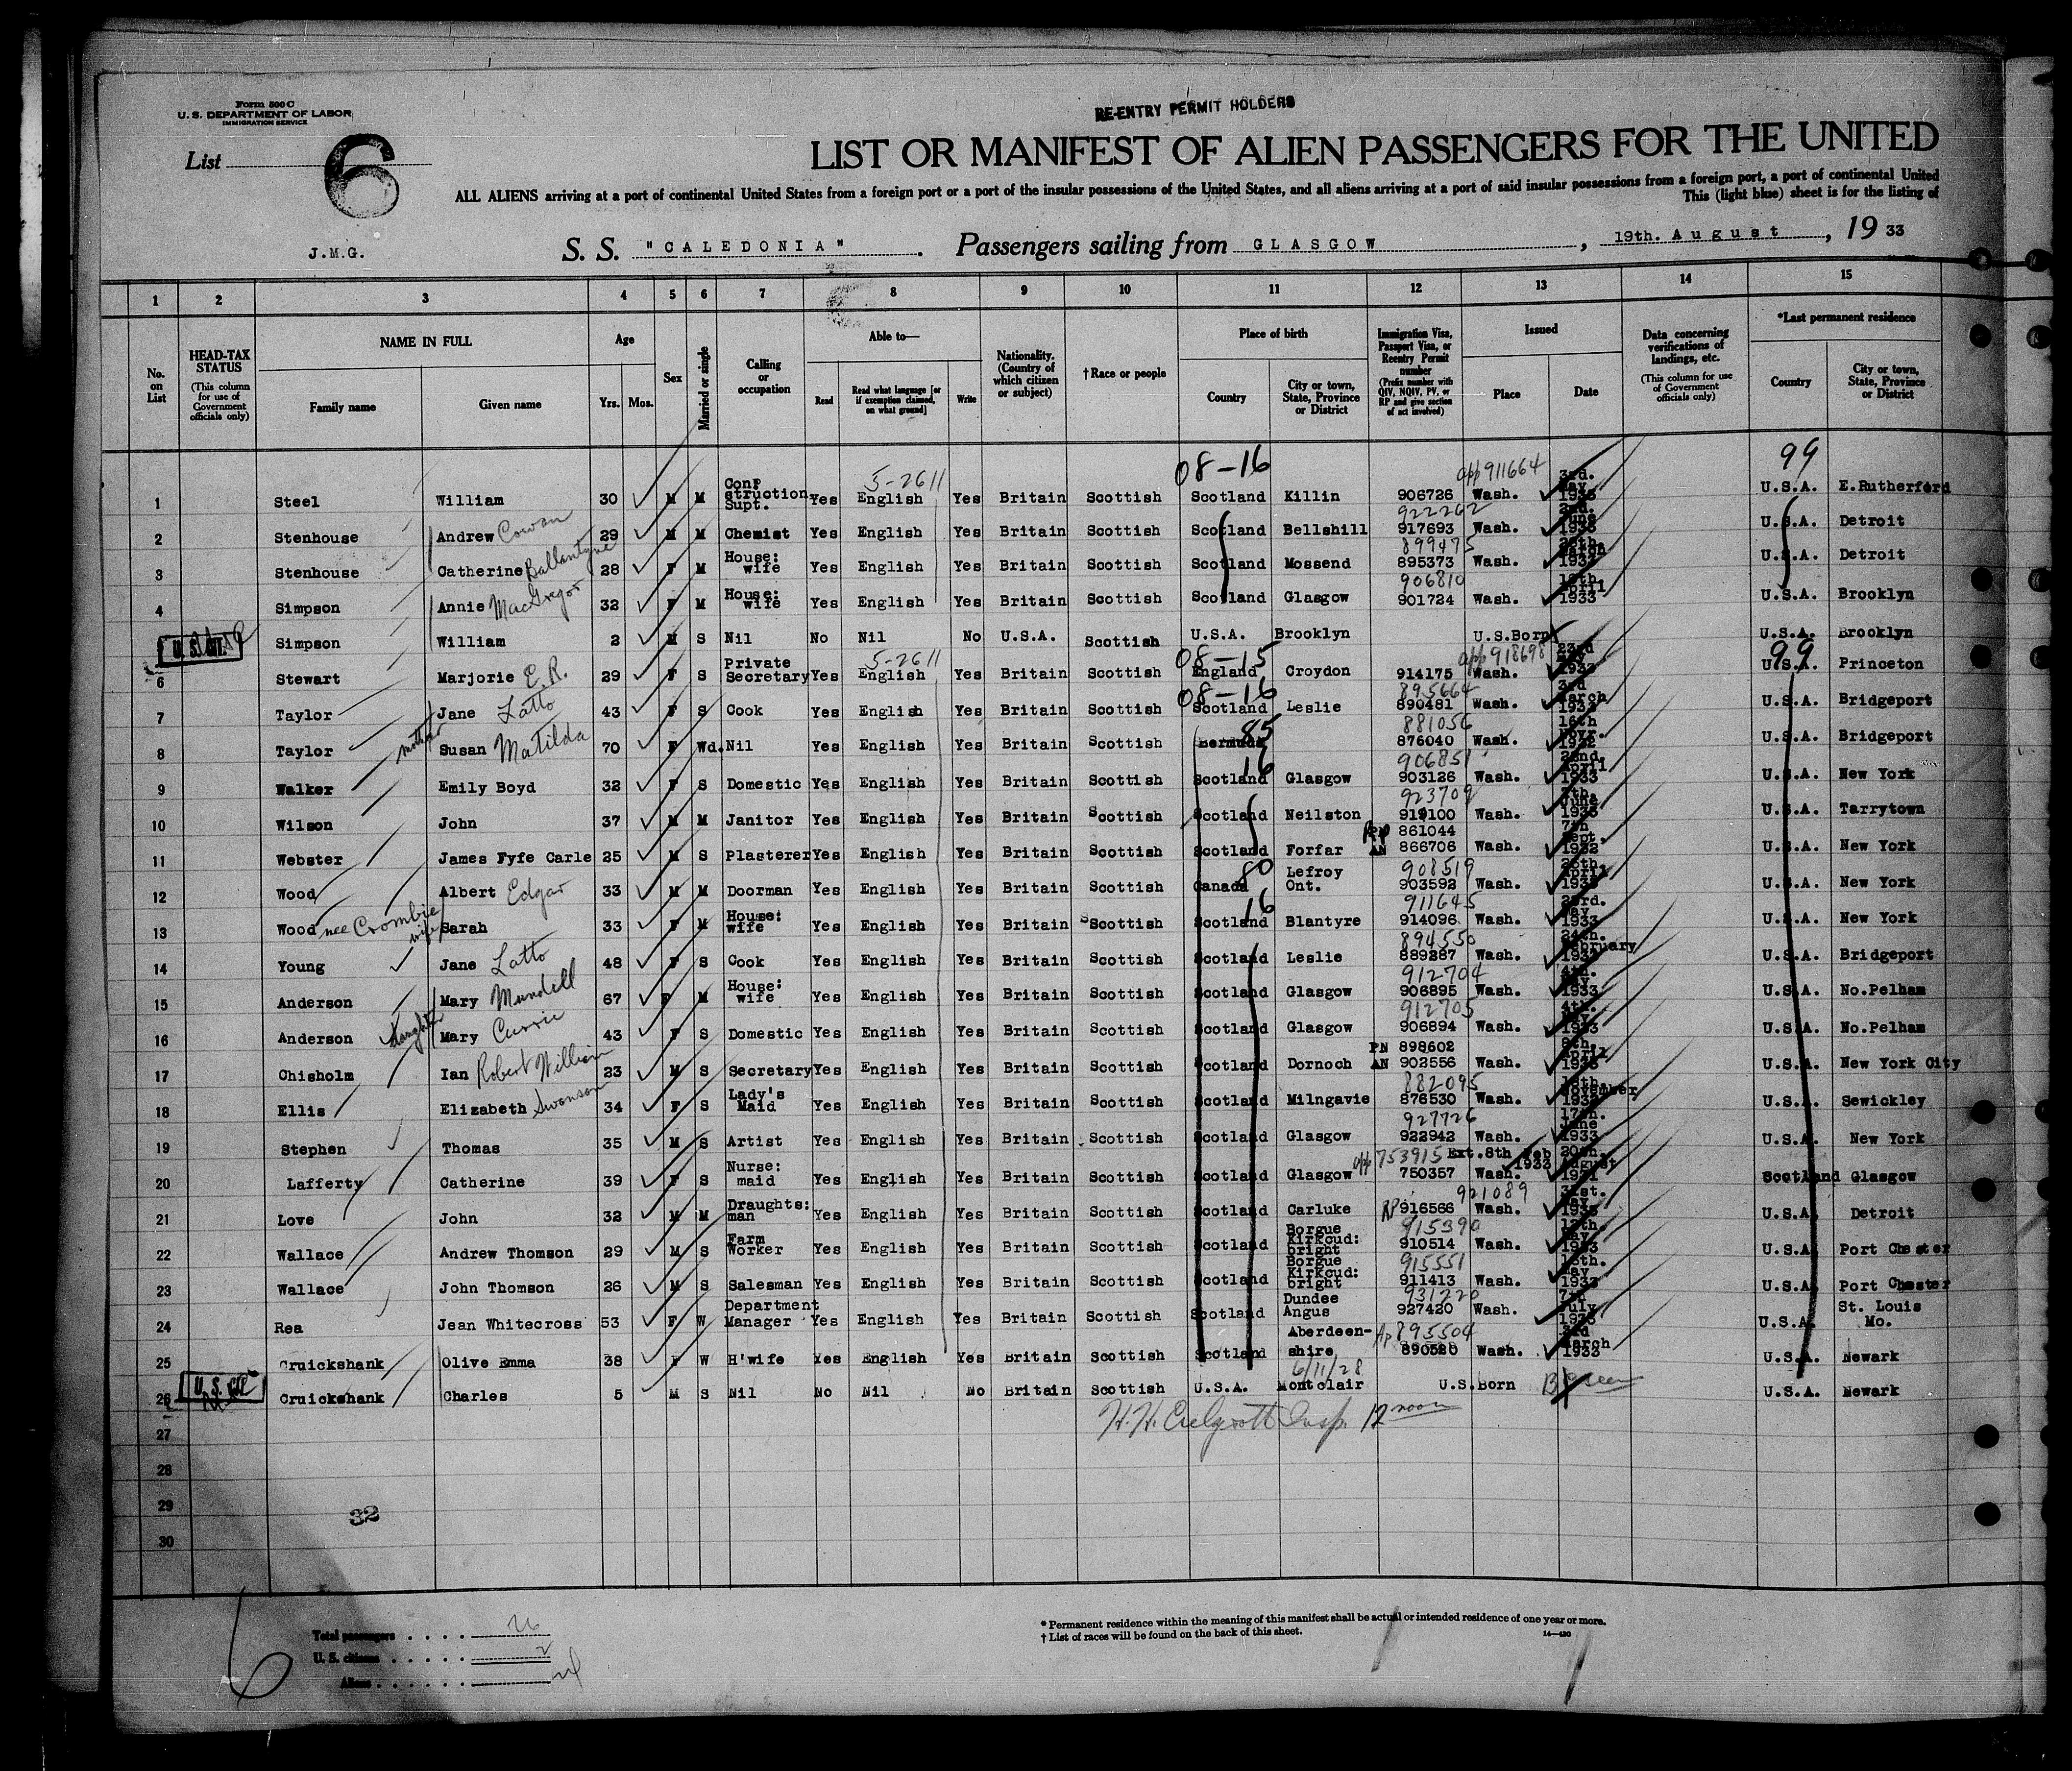 Form 500 C
U. S. DEPARTMENT OF LABOR
IMMIGRATION SERVICE
RE-ENTRY PERMIT HOLDERS
List 6
LIST OR MANIFEST OF ALIEN PASSENGERS FOR THE UNITED
ALL ALIENS arriving at a port of continental United States from a foreign port or a port of the insular possessions of the United States, and all aliens arriving at a port of said insular possessions from a foreign port, a port of continental United
This (light blue) sheet is for the listing of
J.M.G. S. S. "CALEDONIA". Passengers sailing from GLASGOW, 19th. August, 19 33
1 2 3 4 5 6 7 8 9 10 11 12 13 14 15
No. on List
HEAD-TAX STATUS (This column for use of Government officials only)
NAME IN FULL
Family name Given name
Age
Yrs. Mos.
Sex
Married or single
Calling or occupation
Able to—
Read
Read what language [or if exemption claimed, on what ground]
Write
Nationality. (Country of which citizen or subject)
†Race or people
Place of birth
Country
City or town, State, Province or District
Immigration Visa, Passport Visa, or Reentry Permit number (Prefix number with QIV, NQIV, PV, or RP and give section of act involved)
Issued
Place Date
Data concerning verifications of landings, etc. (This column for use of Government officials only)
*Last permanent residence
Country
City or town, State, Province or District
08-16 99
1 Steel William 30 M M Con: struction Supt. Yes English 5-2611 Yes Britain Scottish Scotland Killin 906726 app 911664 Wash. 3rd. May 1933 U.S.A. E.Rutherford
2 Stenhouse Andrew Cowan 29 M M Chemist Yes English Yes Britain Scottish Scotland Bellshill 922262 917693 Wash. 2nd. June 1933 U.S.A. Detroit
3 Stenhouse Catherine Ballantyne 28 F M House: wife Yes English Yes Britain Scottish Scotland Mossend 899475 895373 Wash. March 1933 U.S.A. Detroit
4 Simpson Annie MacGregor 32 F M House: wife Yes English Yes Britain Scottish Scotland Glasgow 906810 901724 Wash. April 1933 U.S.A. Brooklyn
U.S. CIT. Simpson William 2 M S Nil No Nil No U.S.A. Scottish U.S.A. Brooklyn U.S.Born U.S.A. Brooklyn
6 Stewart Marjorie E.R. 29 F S Private Secretary Yes English 5-2611 Yes Britain Scottish 08-15 England Croydon 914175 app 918698 Wash. 23rd May 1933 99 U.S.A. Princeton
7 Taylor Jane Latto 43 F S Cook Yes English Yes Britain Scottish 08-16 Scotland Leslie 895664 890481 Wash. 3rd March 1933 U.S.A. Bridgeport
8 Taylor mother Susan Matilda 70 F Wd. Nil Yes English Yes Britain Scottish Bermuda 85 881056 876040 Wash. 16th Novr. 1932 U.S.A. Bridgeport
9 Walker Emily Boyd 32 F S Domestic Yes English Yes Britain Scottish 16 Scotland Glasgow 906851 903126 Wash. 22nd. April 1933 U.S.A. New York
10 Wilson John 37 M M Janitor Yes English Yes Britain Scottish Scotland Neilston 923709 919100 Wash. June 1933 U.S.A. Tarrytown
11 Webster James Fyfe Carle 25 M S Plasterer Yes English Yes Britain Scottish Scotland Forfar 861044 AN 866706 Wash. 7th Sept. 1932 U.S.A. New York
12 Wood Albert Edgar 33 M M Doorman Yes English Yes Britain Scottish Canada 80 Lefroy Ont. 908519 903592 Wash. April 1933 U.S.A. New York
13 Wood nee Crombie wife Sarah 33 F M House: wife Yes English Yes Britain Scottish 16 Scotland Blantyre 911645 914096 Wash. 23rd. May 1933 U.S.A. New York
14 Young Jane Latto 48 F S Cook Yes English Yes Britain Scottish Scotland Leslie 894550 889287 Wash. 24th. February 1933 U.S.A. Bridgeport
15 Anderson Mary Mundell 67 F M House: wife Yes English Yes Britain Scottish Scotland Glasgow 912704 906895 Wash. 4th. May 1933 U.S.A. No.Pelham
16 Anderson daughter Mary Currie 43 F S Domestic Yes English Yes Britain Scottish Scotland Glasgow 912705 906894 Wash. 4th. May 1933 U.S.A. No.Pelham
17 Chisholm Ian Robert William 23 M S Secretary Yes English Yes Britain Scottish Scotland Dornoch PN 898602 AN 902556 Wash. 8th. April 1933 U.S.A. New York City
18 Ellis Elizabeth Swanson 34 F S Lady's Maid Yes English Yes Britain Scottish Scotland Milngavie 882095 876530 Wash. November 1932 U.S.A. Sewickley
19 Stephen Thomas 35 M S Artist Yes English Yes Britain Scottish Scotland Glasgow 927726 922942 Wash. 17th. June 1933 U.S.A. New York
20 Lafferty Catherine 39 F S Nurse: maid Yes English Yes Britain Scottish Scotland Glasgow app 753915 750357 Ext.8th Feb 1933 Wash. 20th. August 1931 Scotland Glasgow
21 Love John 32 M M Draughts: man Yes English Yes Britain Scottish Scotland Carluke 921089 RP 916566 Wash. 31st. May 1933 U.S.A. Detroit
22 Wallace Andrew Thomson 29 M S Farm Worker Yes English Yes Britain Scottish Scotland Borgue Kirkcud: bright 915390 910514 Wash. May 1933 U.S.A. Port Chester
23 Wallace John Thomson 26 M S Salesman Yes English Yes Britain Scottish Scotland Borgue Kirkcud: bright 915551 911413 Wash. May 1933 U.S.A. Port Chester
24 Rea Jean Whitecross 53 F W Department Manager Yes English Yes Britain Scottish Scotland Dundee Angus 931220 927420 Wash. 7th July 1933 U.S.A. St. Louis Mo.
25 Cruickshank Olive Emma 38 F W H'wife Yes English Yes Britain Scottish Scotland Aberdeen-shire Ap 895504 890580 Wash. 3rd March 1933 U.S.A. Newark
U.S. CIT. 26 Cruickshank Charles 5 M S Nil No Nil No Britain Scottish U.S.A. 6/11/28 Montclair U.S.Born BC seen U.S.A. Newark
H.H. Insp. 12 noon
27
28
29
32
30
6
Total passengers . . . . 26
U. S. citizens . . . . . 2
Aliens . . . . . . 24
* Permanent residence within the meaning of this manifest shall be actual or intended residence of one year or more.
† List of races will be found on the back of this sheet.
14—430